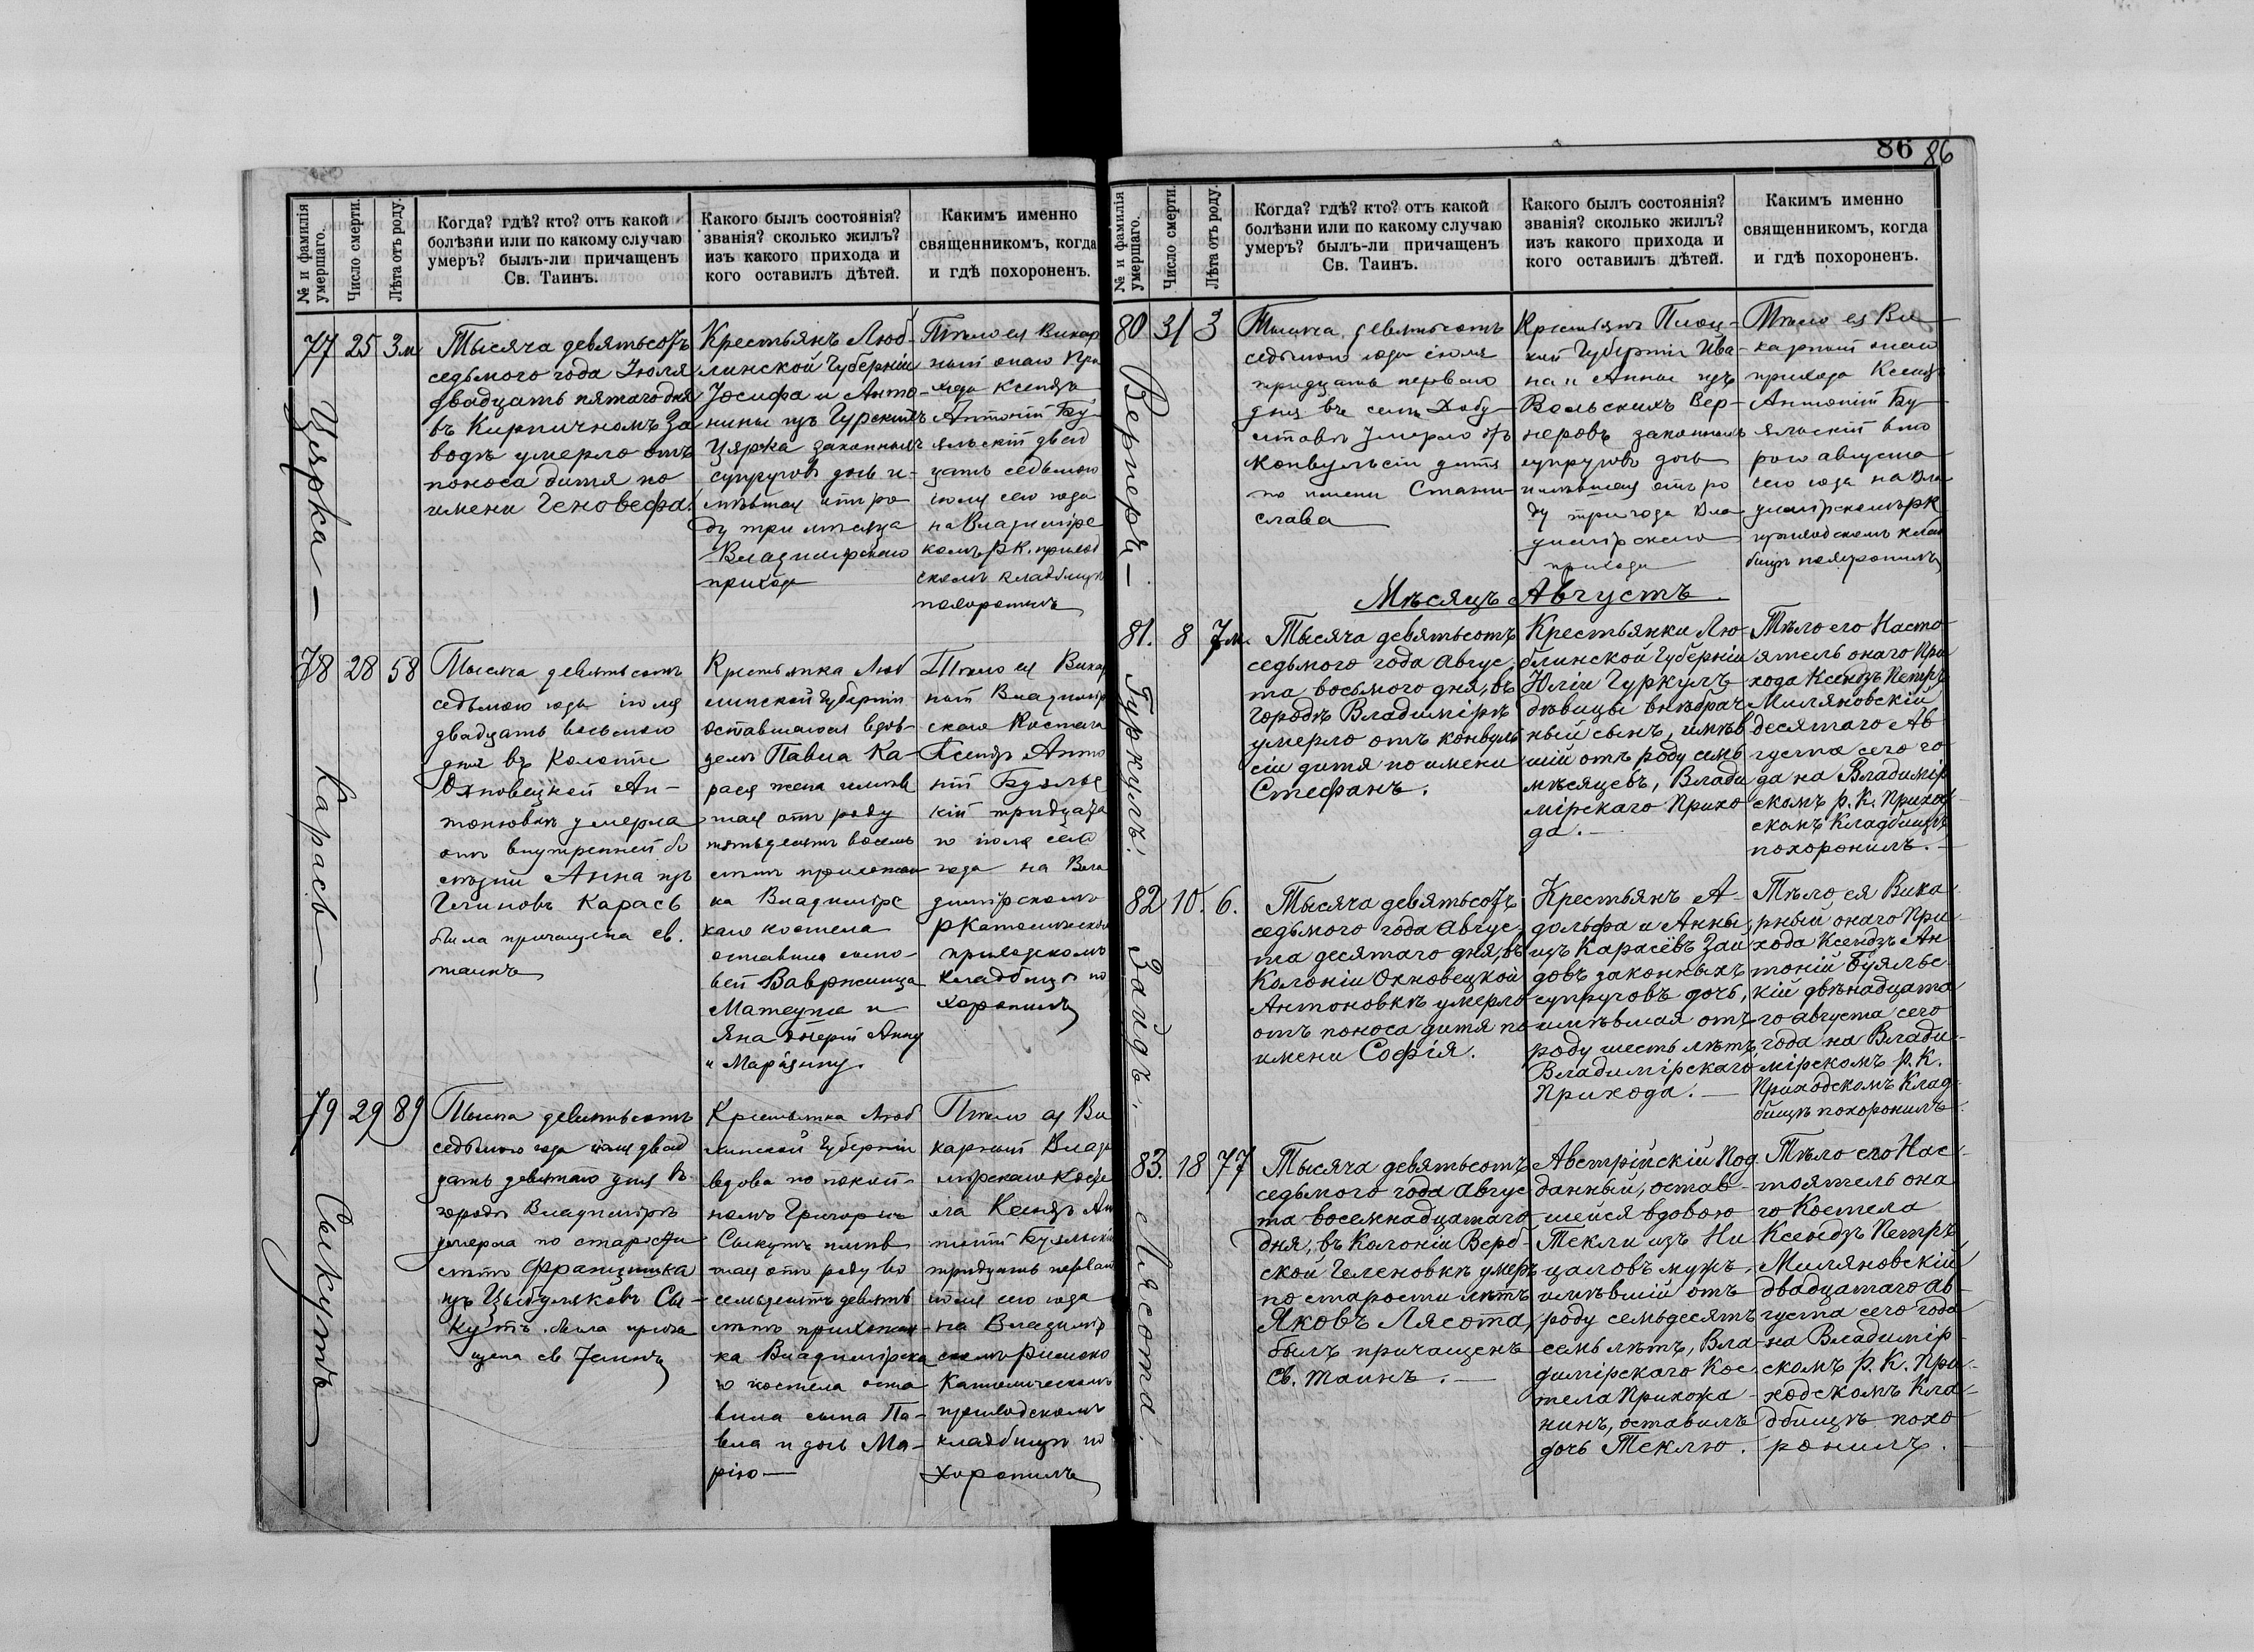 86 86
№ и фамилія
умершаго.
Число смерти.
Лѣта отъ роду.
Когда? гдѣ? кто? отъ какой
болѣзни или по какому случаю
умеръ? былъ-ли причащенъ
Св. Таинъ.
Какого былъ состоянія?
званія? сколько жилъ?
изъ какого прихода и
кого оставилъ дѣтей.
Какимъ именно
священникомъ, когда
и гдѣ похороненъ.
77 Цярка
25
3 м
Тысяча девятьсотъ
седьмого года Іюля
двадцать пятаго дня
въ Кирпичномъ За
водѣ умерло отъ
поноса дитя по
имени Геновефа.
Крестьянъ Люб-
линской Губерніи
Юсифа и Анто-
нины изъ Гурскихъ
Цярка законныхъ
супруговъ дочь и-
мѣвшая отъ ро
ду три мѣсяца
Владимірскаго
прихода
Тѣло ея Викар
ный онаго При
хода Ксендзъ
Антоній Бу
яльскій двад
цать седьмого
іюля сего года
на Владимірс
комъ Р К. приход
скомъ кладбищѣ
похоронилъ
78 Карась
28
58
Тысяча девятьсотъ
седьмого года іюля
двадцать восьмого
дня въ Колоніи
Охновецкой Ан-
тоновкѣ умерла
отъ внутренней бо
лѣзни Анна изъ
Карась
была причащена св.
таинъ
Крестьянка Люб
линской Губерніи
оставшагося вдов-
цемъ Павла Ка-
рася жена имѣв
шая отъ роду
пятьдесятъ восемь
лѣтъ прихожан
ка Владимірс
каго костела
оставила сыно-
вей Вавржинца
Матеуша и
Яна дочерей Анну
и Маріанну.
Тѣло ея Викар
ный Владимір
скаго Костела
Ксендзъ Анто
ній Буяльс
кій тридцата
го іюля сего
года на Вла
димірскомъ
РКатолическом
приходскомъ
кладбищѣ по
хоронилъ
79 Сыкутъ
29
89
Тысяча девятьсотъ
седьмого года іюля двад
цать девятаго дня въ
городѣ Владимірѣ
умерла по старости
лѣтъ Францишка
изъ Цыбуляковъ Сы-
кутъ. была прича
щена св Таинъ
Крестьянка Люб
линской Губерніи
вдова по покой-
номъ Григоріи
Сыкутъ имѣв
шая отъ роду во
семьдесятъ девять
лѣтъ прихожан-
ка Владимірска
го костела оста
вила сына Па-
вла и дочь Ма-
рію
Тѣло ея Ви
карный Влади
мірскаго Косте
ла Ксендзъ Ан
тоній Буяльскій
тридцать перваго
іюля сего года
на Владимір
скомъ Римско
Католическомъ
приходскомъ
кладбищѣ по
хоронилъ
№ и фамилія
умершаго.
Число смерти.
Лѣта отъ роду.
Когда? гдѣ? кто? отъ какой
болѣзни или по какому случаю
умеръ? былъ-ли причащенъ
Св. Таинъ.
Какого былъ состоянія?
званія? сколько жилъ?
изъ какого прихода и
кого оставилъ дѣтей.
Какимъ именно
священникомъ, когда
и гдѣ похороненъ.
80 Вернеръ
31
3
Тысяча девятьсотъ
седьмого года іюля
тридцать перваго
дня въ селѣ Хобу
лтовѣ умерло отъ
конвульсіи дитя
по имени Стани
слава
Крестьянъ Плоц-
кой Губерніи Ива
на и Анны изъ
Вольскихъ Вер-
неровъ законныхъ
супруговъ дочь
имѣвшая отъ ро
ду три года Вла
димірскаго
прихода
Тѣло ея Ви
карный онаго
прихода Ксендзъ
Антоній Бу
яльскій вто
рого августа
сего года на Вла
димірскомъ Р К
приходскомъ клад
бищѣ похоронилъ
Мѣсяцъ Августъ.
81. Гуркулъ.
8
7 м.
Тысяча девятьсотъ
седьмого года Авгус-
та восьмого дня, въ
городѣ Владимірѣ
умерло отъ конвуль
сіи дитя по имени
Стефанъ.
Крестьянки Лю-
блинской Губерніи
Юліи Гуркулъ
дѣвицы внѣбрач
ный сынъ, имѣв
шій отъ роду семь
мѣсяцевъ, Влади
мірскаго Прихо
да.
Тѣло его Насто-
ятель онаго При
хода Ксендзъ Петръ
Миляновскій
десятаго Ав
густа сего го
да на Владимір
скомъ Р. К. Приход
скомъ Кладбищѣ
похоронилъ.
82 Заидъ.
10.
6.
Тысяча девятьсотъ
седьмого года Авгус-
та десятаго дня, въ
Колоніи Охновецкой
Антоновкѣ умерло
отъ поноса дитя по
имени Софія.
Крестьянъ А-
дольфа и Анны
изъ Карасёвъ Заи
довъ законныхъ
супруговъ дочь,
имѣвшая отъ
роду шесть лѣтъ,
Владимірскаго
Прихода.
Тѣло ея Вика
рный онаго При
хода Ксендзъ Ан
тоній Буяльс-
кій двѣнадцата
го Августа сего
года на Влади-
мірскомъ Р. К.
Приходскомъ Клад
бищѣ похоронилъ.
83. Лясота.
18
77
Тысяча девятьсотъ
седьмого года Авгус
та восемнадцатаго
дня, въ Колоніи Верб-
ской Геленовкѣ умеръ
по старости лѣтъ
Яковъ Лясота,
былъ причащенъ
Св. Таинъ.
Австрійскій Под
данный, остав-
шейся вдовою
Текли изъ Ни
цаловъ мужъ,
имѣвшій отъ
роду семьдесятъ
семь лѣтъ, Вла-
димірскаго Кос
тела Прихожа-
нинъ, оставилъ
дочь Теклю.
Тѣло его Нас-
тоятель она
го Костела
Ксендзъ Петръ
Миляновскій
двадцатаго Ав-
густа сего года
на Владимір-
скомъ Р. К. При-
ходскомъ Кла-
дбищѣ похо
ронилъ.